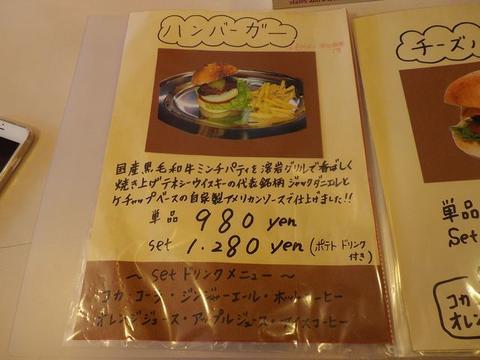 ハンバーガー
国産黒毛和牛ミンチパティを溶岩グリルで香ばしく
焼き上げテネシーウイスキーの代表銘柄ジャックダニエルと
ケチャップベースの自家製アメリカンソースで仕上げました!!
単品 980 yen
set 1.280 yen (ポテト ドリンク
付き)
〜 set ドリンクメニュー 〜
コカ・コーラ・ジンジャーエール・ホットコーヒー
オレンジジュース・アップルジュース・アイスコーヒー
チーズバ
単品
Set
コカ
オレ